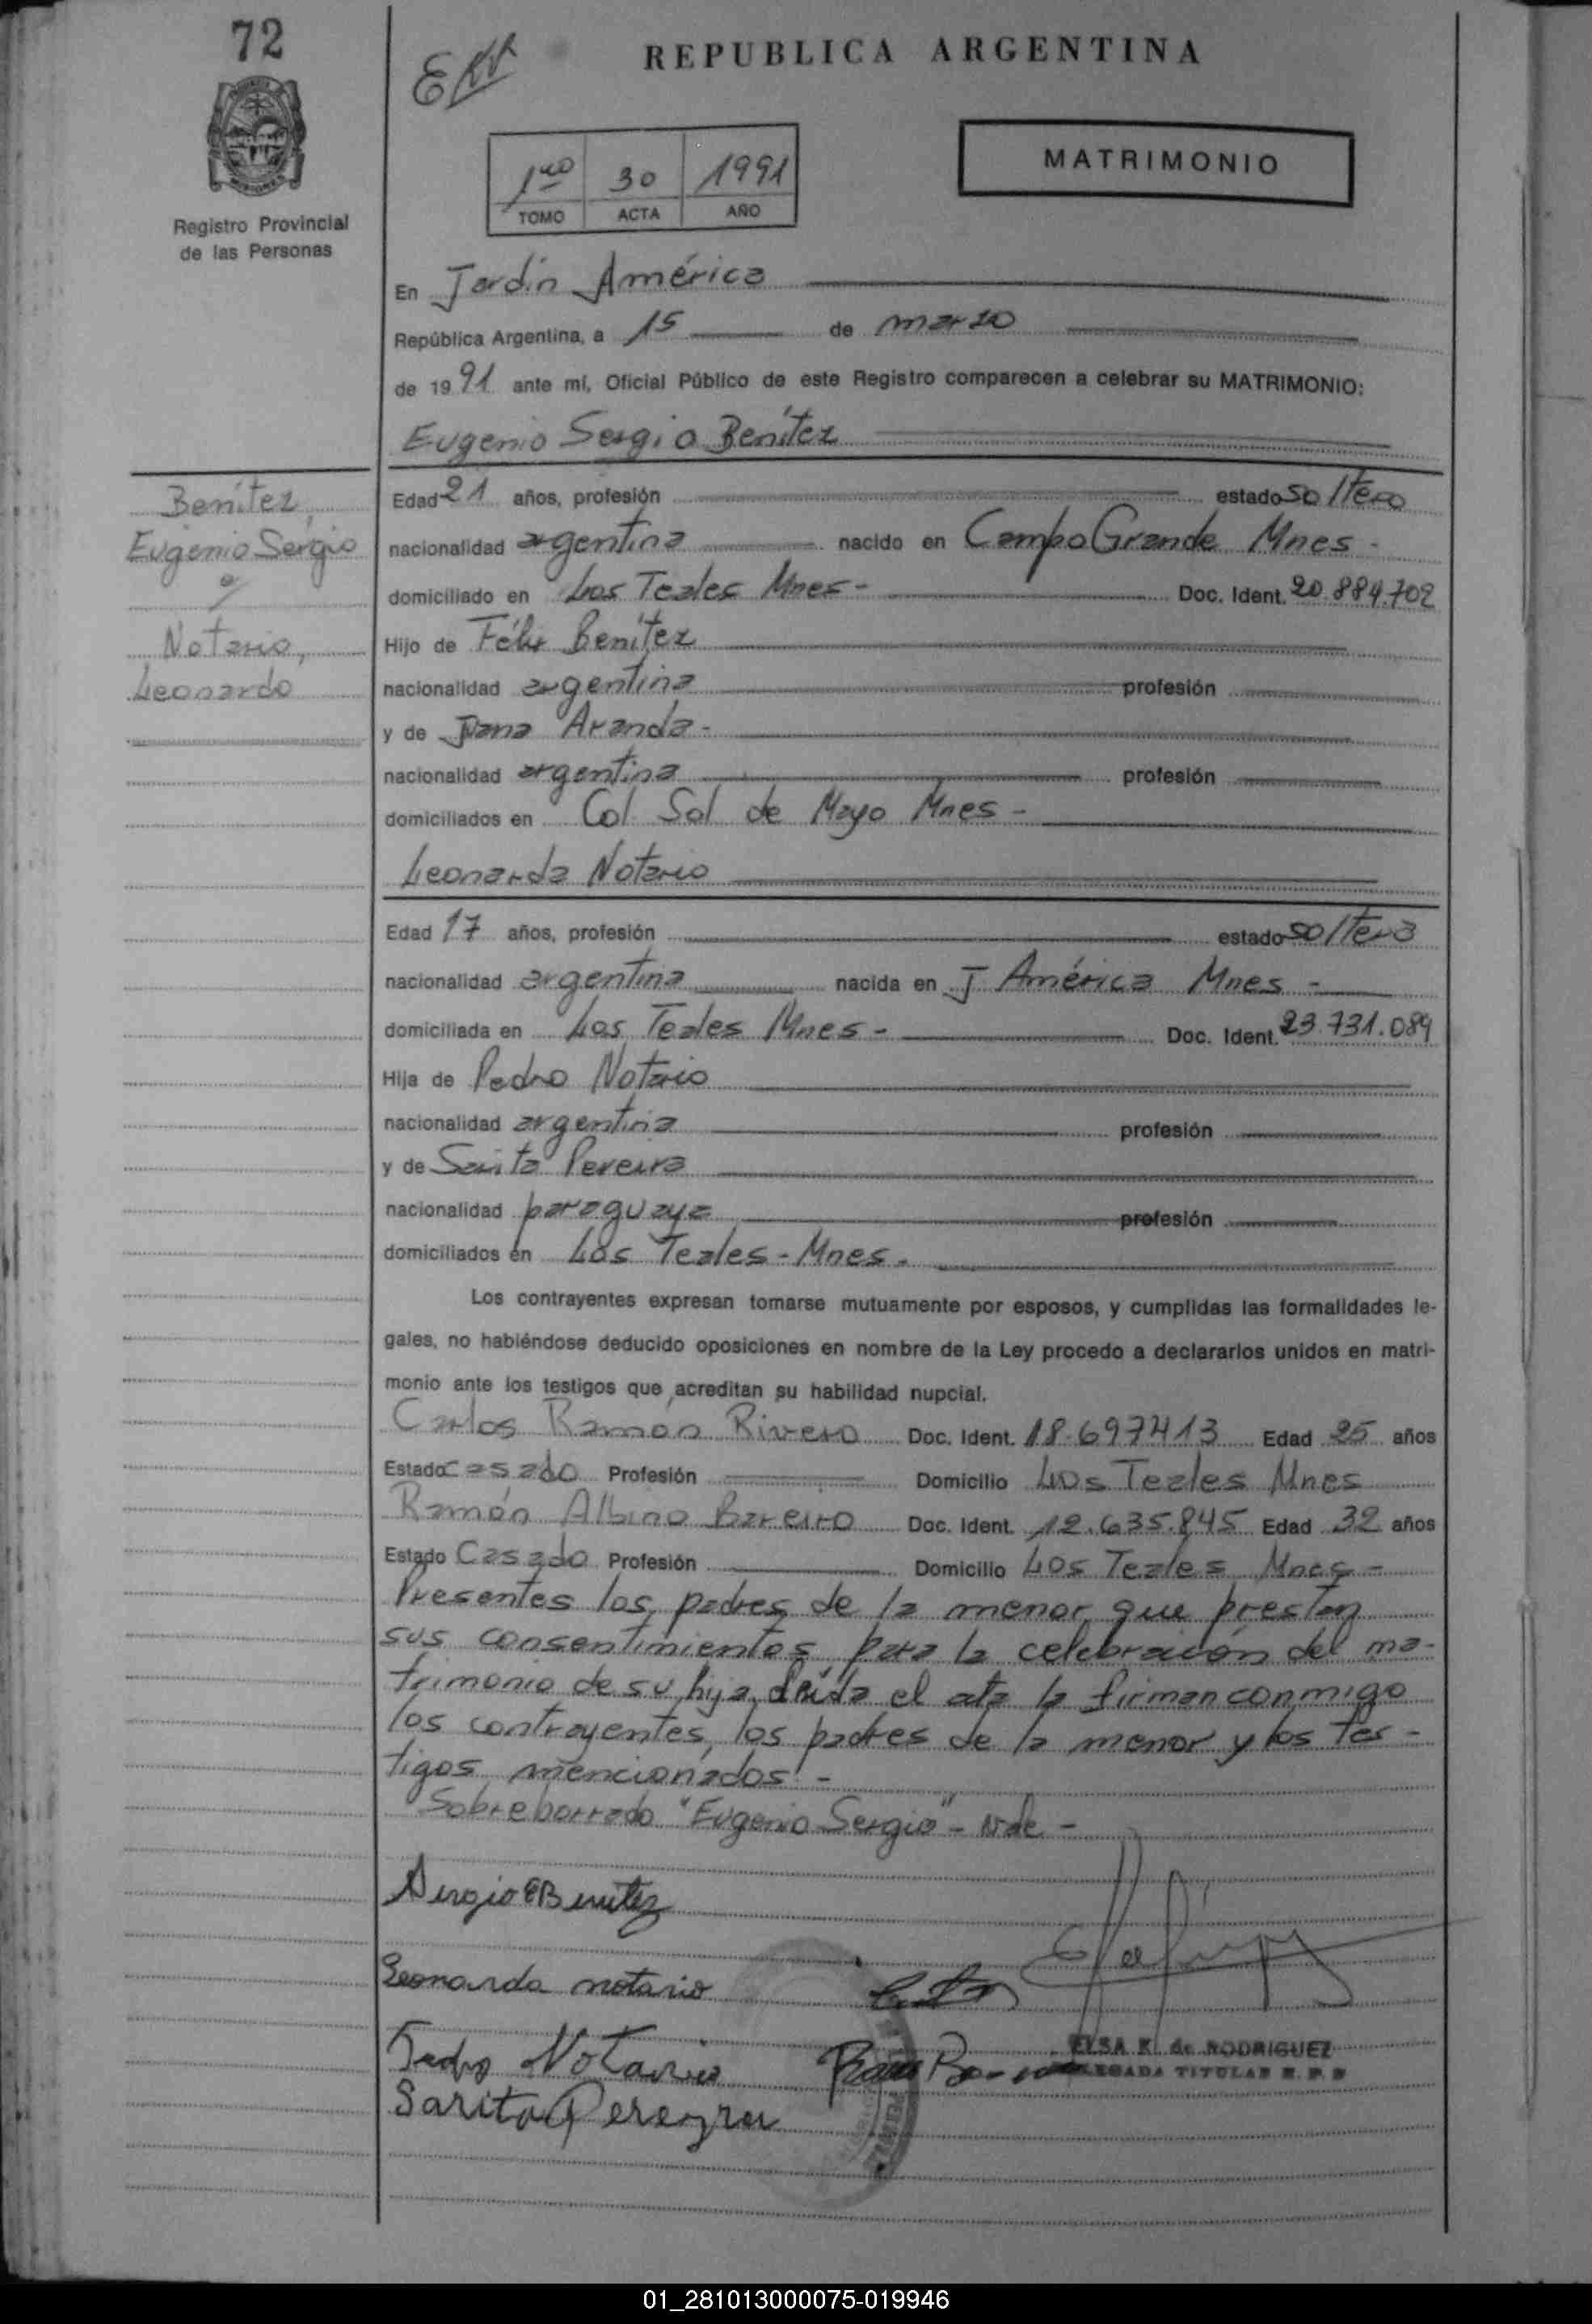 72
REPUBLICA ARGENTINA
MATRIMONIO
1ro 30 1991
TOMO ACTA AÑO
Registro Provincial
de las Personas
En Jardín América
República Argentina, a 15 de marzo
de 1991 ante mí, Oficial Público de este Registro comparecen a celebrar su MATRIMONIO:
Eugenio Sergio Benítez
Benítez,
Eugenio Sergio
c/
Notario,
Leonarda
Edad 21 años, profesión estado soltero
nacionalidad argentina nacido en Campo Grande Mnes -
domiciliado en Los Teales Mnes - Doc. Ident. 20.884.702
Hijo de Félix Benítez
nacionalidad argentina profesión
y de Juana Aranda -
nacionalidad argentina profesión
domiciliados en Col. Sol de Mayo Mnes -
Leonarda Notario
Edad 17 años, profesión estado soltera
nacionalidad argentina nacida en J América Mnes -
domiciliada en Los Teales Mnes - Doc. Ident. 23.731.089
Hija de Pedro Notario
nacionalidad argentina profesión
y de Sarita Pereira
nacionalidad paraguaya profesión
domiciliados en Los Teales - Mnes -
Los contrayentes expresan tomarse mutuamente por esposos, y cumplidas las formalidades le-
gales, no habiéndose deducido oposiciones en nombre de la Ley procedo a declararlos unidos en matri-
monio ante los testigos que acreditan su habilidad nupcial.
Carlos Ramón Rivero Doc. Ident. 18.697413 Edad 25 años
Estado casado Profesión Domicilio Los Teales Mnes
Ramón Albino Bareiro Doc. Ident. 12.635.845 Edad 32 años
Estado Casado Profesión Domicilio Los Teales Mnes -
Presentes los padres de la menor que prestan
sus consentimientos para la celebración del ma-
trimonio de su hija, leída el acta la firman conmigo
los contrayentes, los padres de la menor y los tes-
tigos mencionados -
Sobreborrado "Eugenio Sergio" - Vale -
Sergio E Benitez
Leonarda notario
Pedro Notario
Sarita Pereyra
ELSA K. de RODRIGUEZ
DELEGADA TITULAR R. P. P
01_281013000075-019946